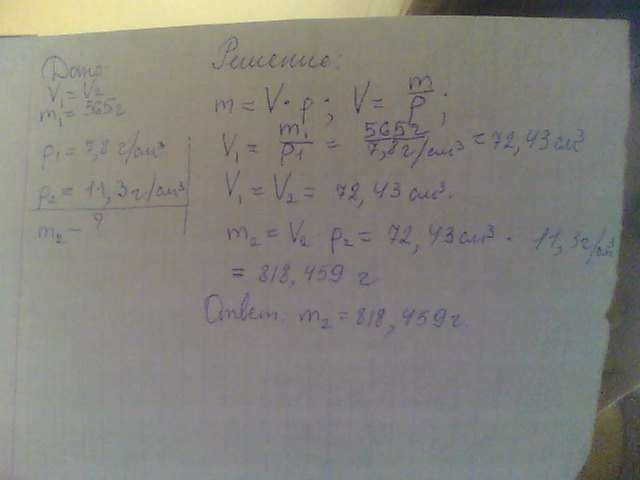 Дано:
V₁ = V₂
m₁ = 565г
ρ₁ = 7,8 г/см³
ρ₂ = 11,3 г/см³
m₂ - ?
Решение:
m = V · ρ; V = m/ρ;
V₁ = m₁/ρ₁ = 565г/7,8г/см³ = 72,43 см³
V₁ = V₂ = 72,43 см³.
m₂ = V₂ ρ₂ = 72,43 см³ · 11,3г/см³
= 818,459 г
Ответ: m₂ = 818,459г.